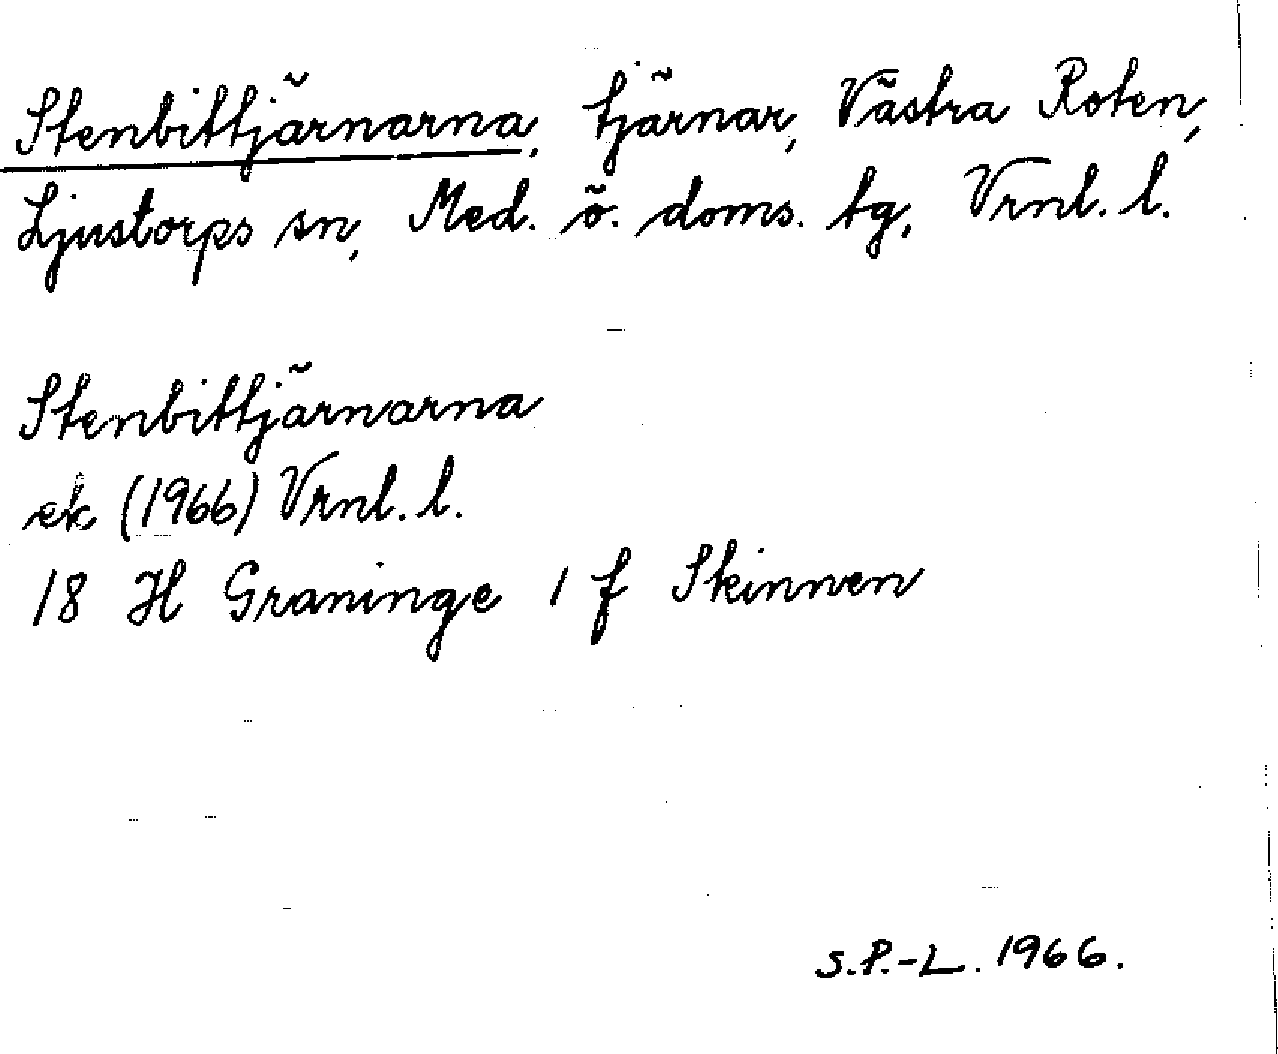 Stenbittjärnarna, tjärnar, Västra Roten,
Ljustorps sn, Med. ö. doms. tg, Vrnl. l.
Stenbittjärnarna
ek (1966) Vrnl. l.
18 H Graninge 1 f Skinnen
S.P.-L. 1966.